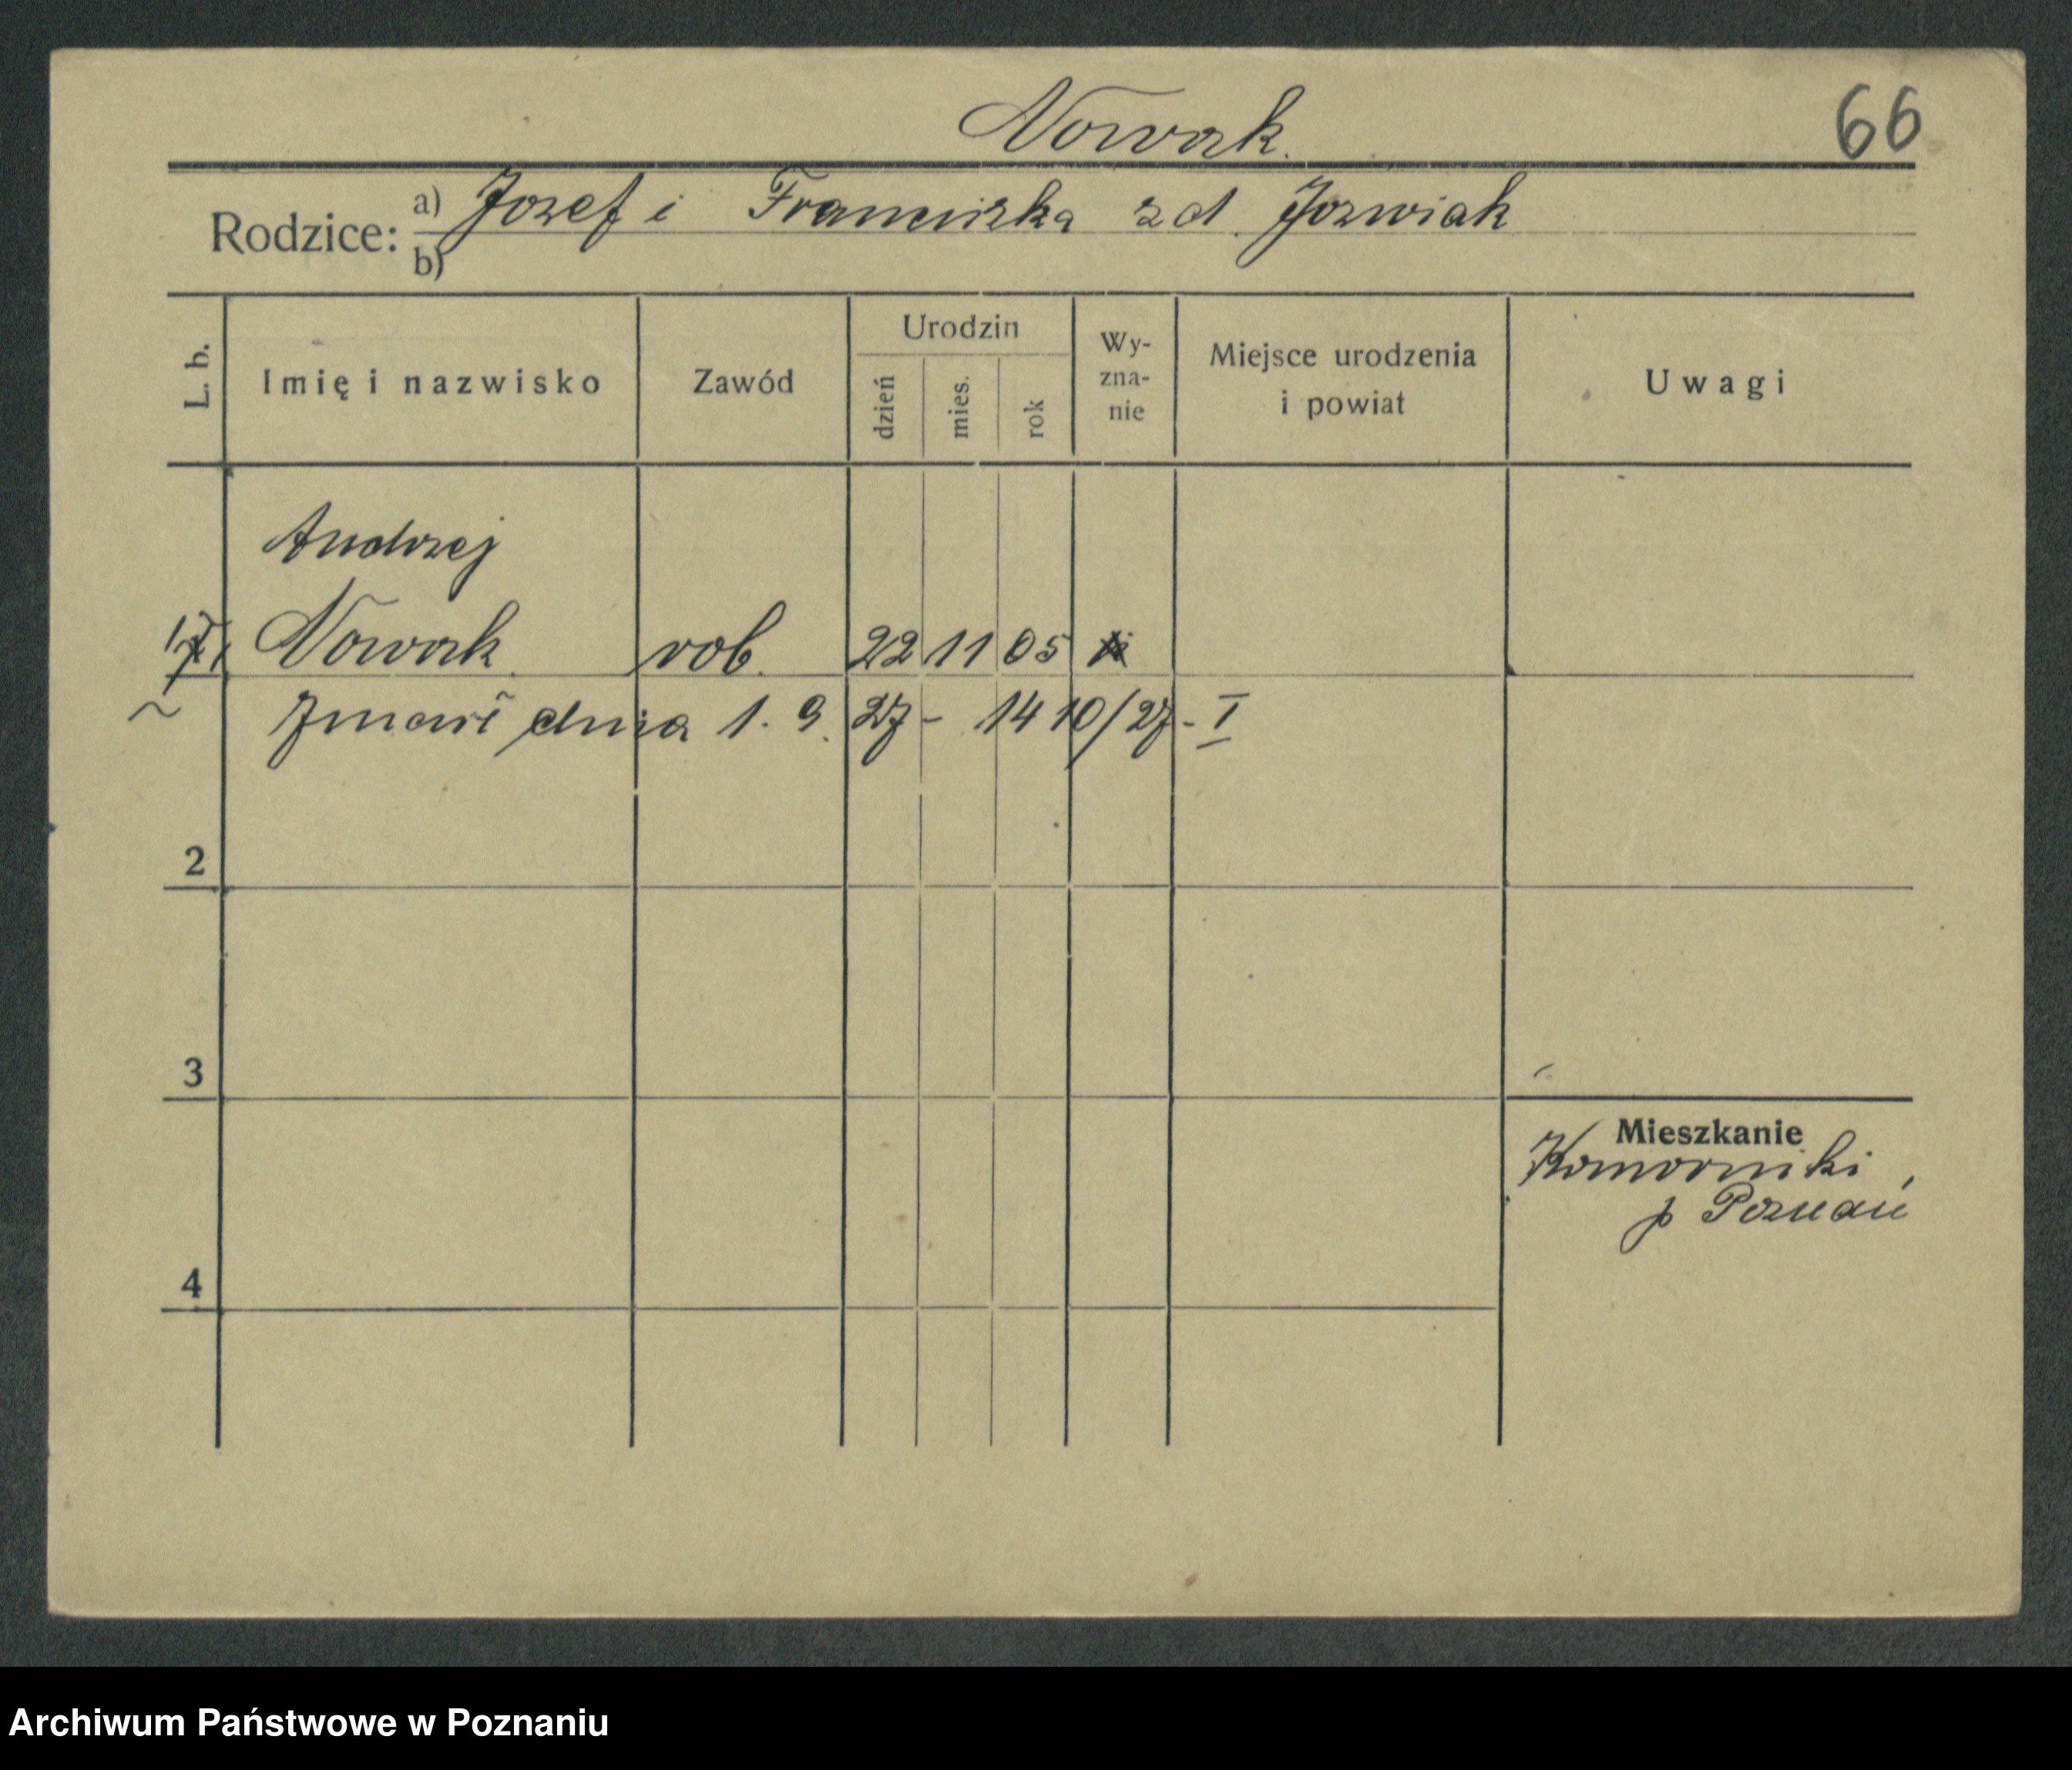 Nowak.
66
Rodzice: a) Jozef i Franciszka z d. Jozwiak
b)
L. b.
Imię i nazwisko
Zawód
Urodzin
dzień
mies.
rok
Wy-
zna-
nie
Miejsce urodzenia
i powiat
Uwagi
Andrzej
Nowak rob. 22 11 05
dnia 1. 9. 27 - 14 10/27 - I
2
3
4
Mieszkanie
Komorniki,
p Poznań
Archiwum Państwowe w Poznaniu